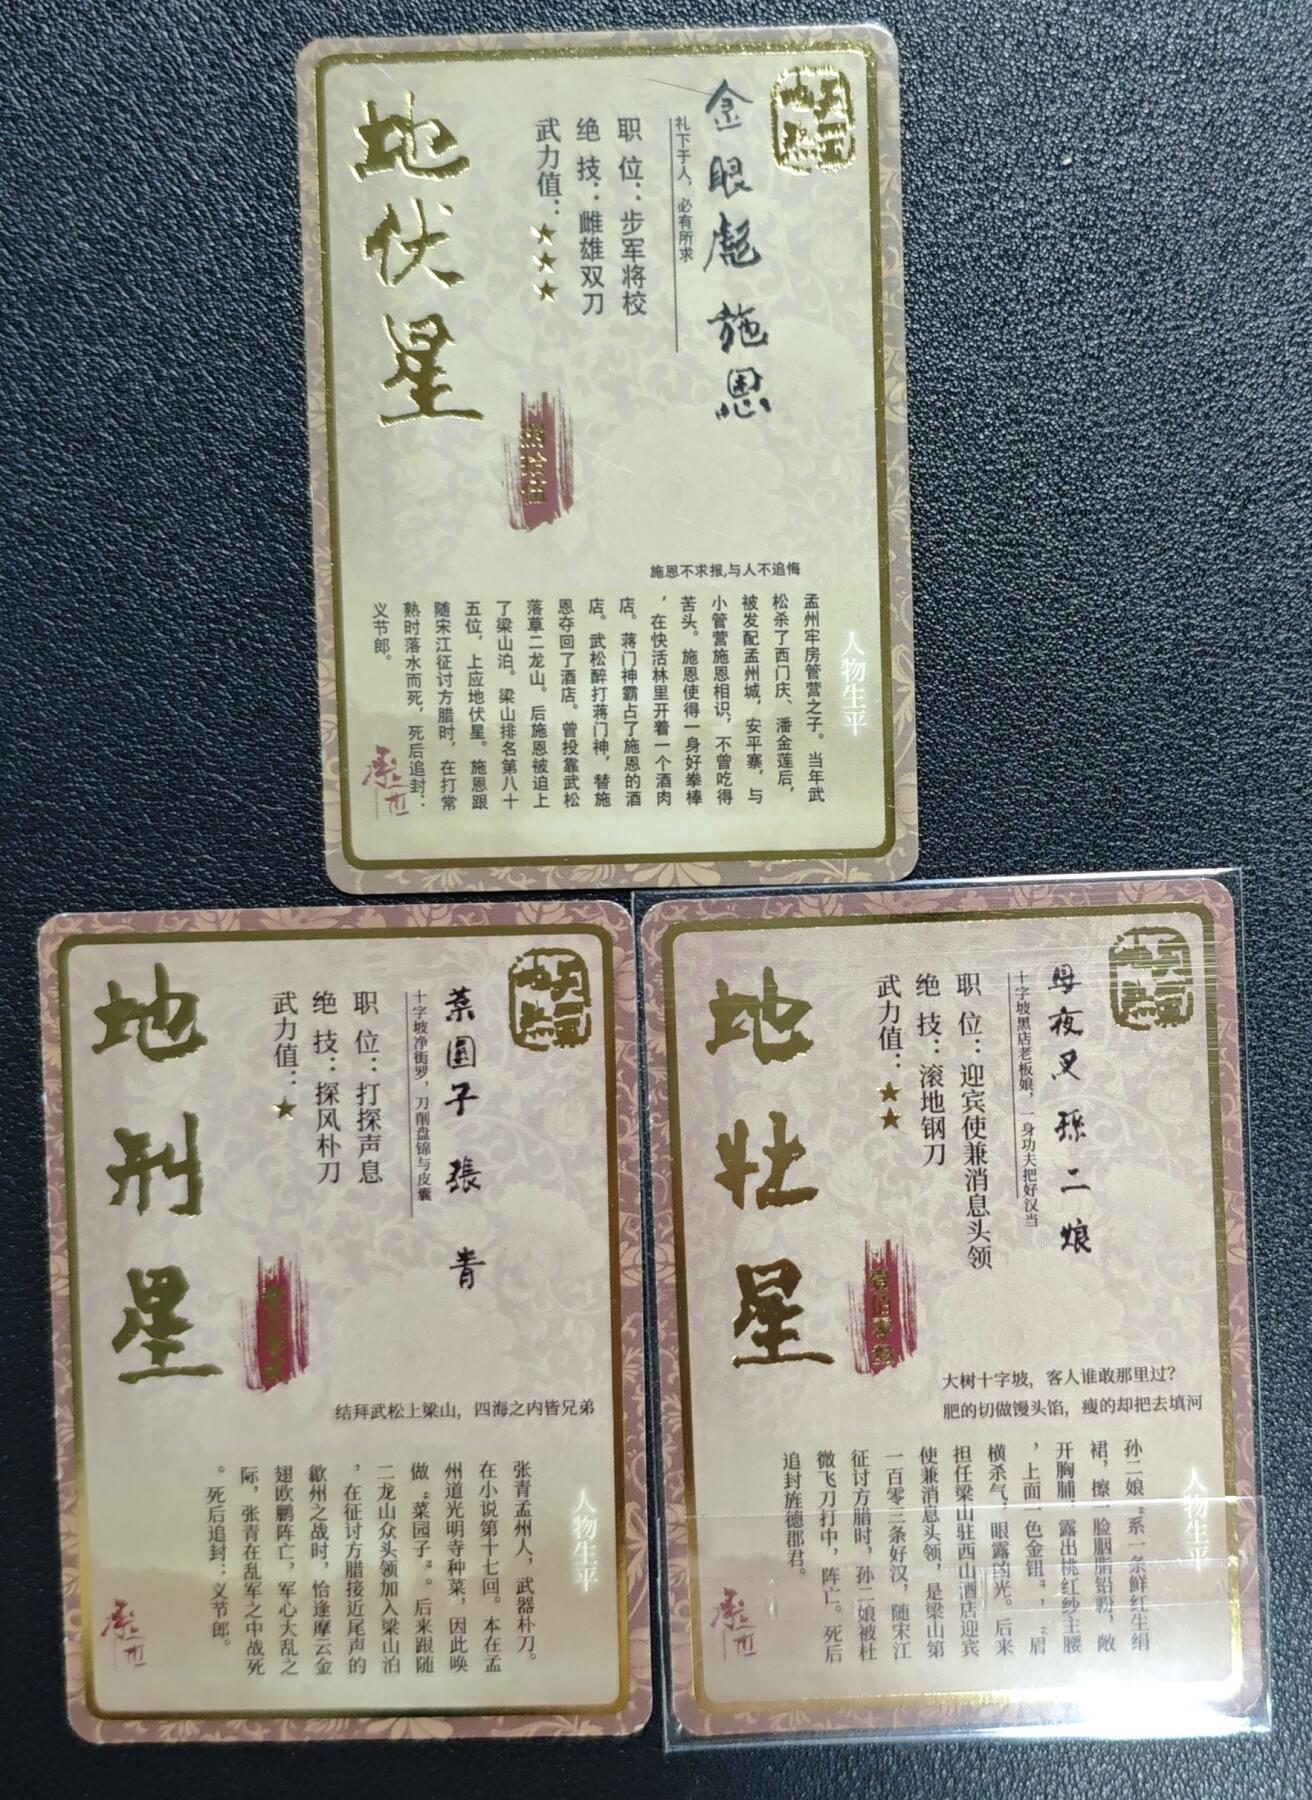 金眼彪 施恩
礼下于人，必有所求
职 位：步军将校
绝 技：雌雄双刀
武力值：★★★
地伏星
捌拾伍
施恩不求报,与人不追悔
人物生平
孟州牢房管营之子。当年武
松杀了西门庆、潘金莲后，
被发配孟州城，安平寨，与
小管营施恩相识，不曾吃得
苦头。施恩使得一身好拳棒
，在快活林里开着一个酒肉
店。蒋门神霸占了施恩的酒
店。武松醉打蒋门神，替施
恩夺回了酒店。曾投靠武松
落草二龙山。后施恩被迫上
了梁山泊。梁山排名第八十
五位，上应地伏星。施恩跟
随宋江征讨方腊时，在打常
熟时落水而死，死后追封：
义节郎。
菜園子 張青
十字坡净街罗，刀削盘锦与皮囊
职 位：打探声息
绝 技：探风朴刀
武力值：★
地刑星
结拜武松上梁山，四海之内皆兄弟
人物生平
张青孟州人，武器朴刀。
在小说第十七回。本在孟
州道光明寺种菜，因此唤
做“菜园子”。后来跟随
二龙山众头领加入梁山泊
，在征讨方腊接近尾声的
歙州之战时，恰逢摩云金
翅欧鹏阵亡，军心大乱之
际，张青在乱军之中战死
。死后追封：义节郎。
母夜叉 孫二娘
十字坡黑店老板娘，一身功夫把好汉当
职 位：迎宾使兼消息头领
绝 技：滚地钢刀
武力值：★★
地壮星
壹佰零叁
大树十字坡，客人谁敢那里过？
肥的切做馒头馅，瘦的却把去填河
人物生平
孙二娘“系一条鲜红生绢
裙，擦一脸胭脂铅粉，敞
开胸脯，露出桃红纱主腰
，上面一色金钮”，“眉
横杀气，眼露凶光。后来
担任梁山驻西山酒店迎宾
使兼消息头领，是梁山第
一百零三条好汉，随宋江
征讨方腊时，孙二娘被杜
微飞刀打中，阵亡。死后
追封旌德郡君。